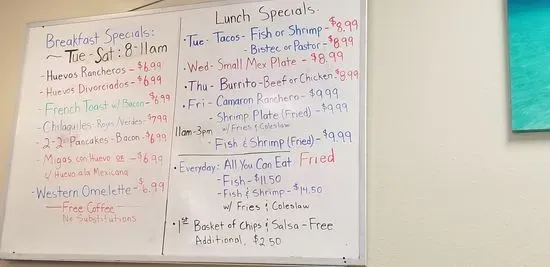 Breakfast Specials:
~ Tue - Sat: 8-11am
- Huevos Rancheros - $6.99
- Huevos Divorciados - $6.99
- French Toast w/ Bacon - $6.99
- Chilaquiles - Rojos, Verdes - $7.99
- 2-2 Pancakes - Bacon - $6.99
- Migas con Huevo or - $6.99
c/ Huevo a la Mexicana
- Western Omelette - $6.99
Free Coffee
No Substitutions
Lunch Specials.
• Tue - Tacos - Fish or Shrimp - $8.99
- Bistec or Pastor - $8.99
• Wed - Small Mex Plate - $8.99
• Thu - Burrito - Beef or Chicken - $8.99
• Fri - Camaron Ranchero - $9.99
- Shrimp Plate (Fried) - $9.99
w/ Fries & Coleslaw
11am-3pm
- Fish & Shrimp (Fried) - $9.99
• Everyday: All You Can Eat Fried
- Fish - $11.50
- Fish & Shrimp - $14.50
w/ Fries & Coleslaw
• 1st Basket of Chips & Salsa - Free
Additional, $2.50